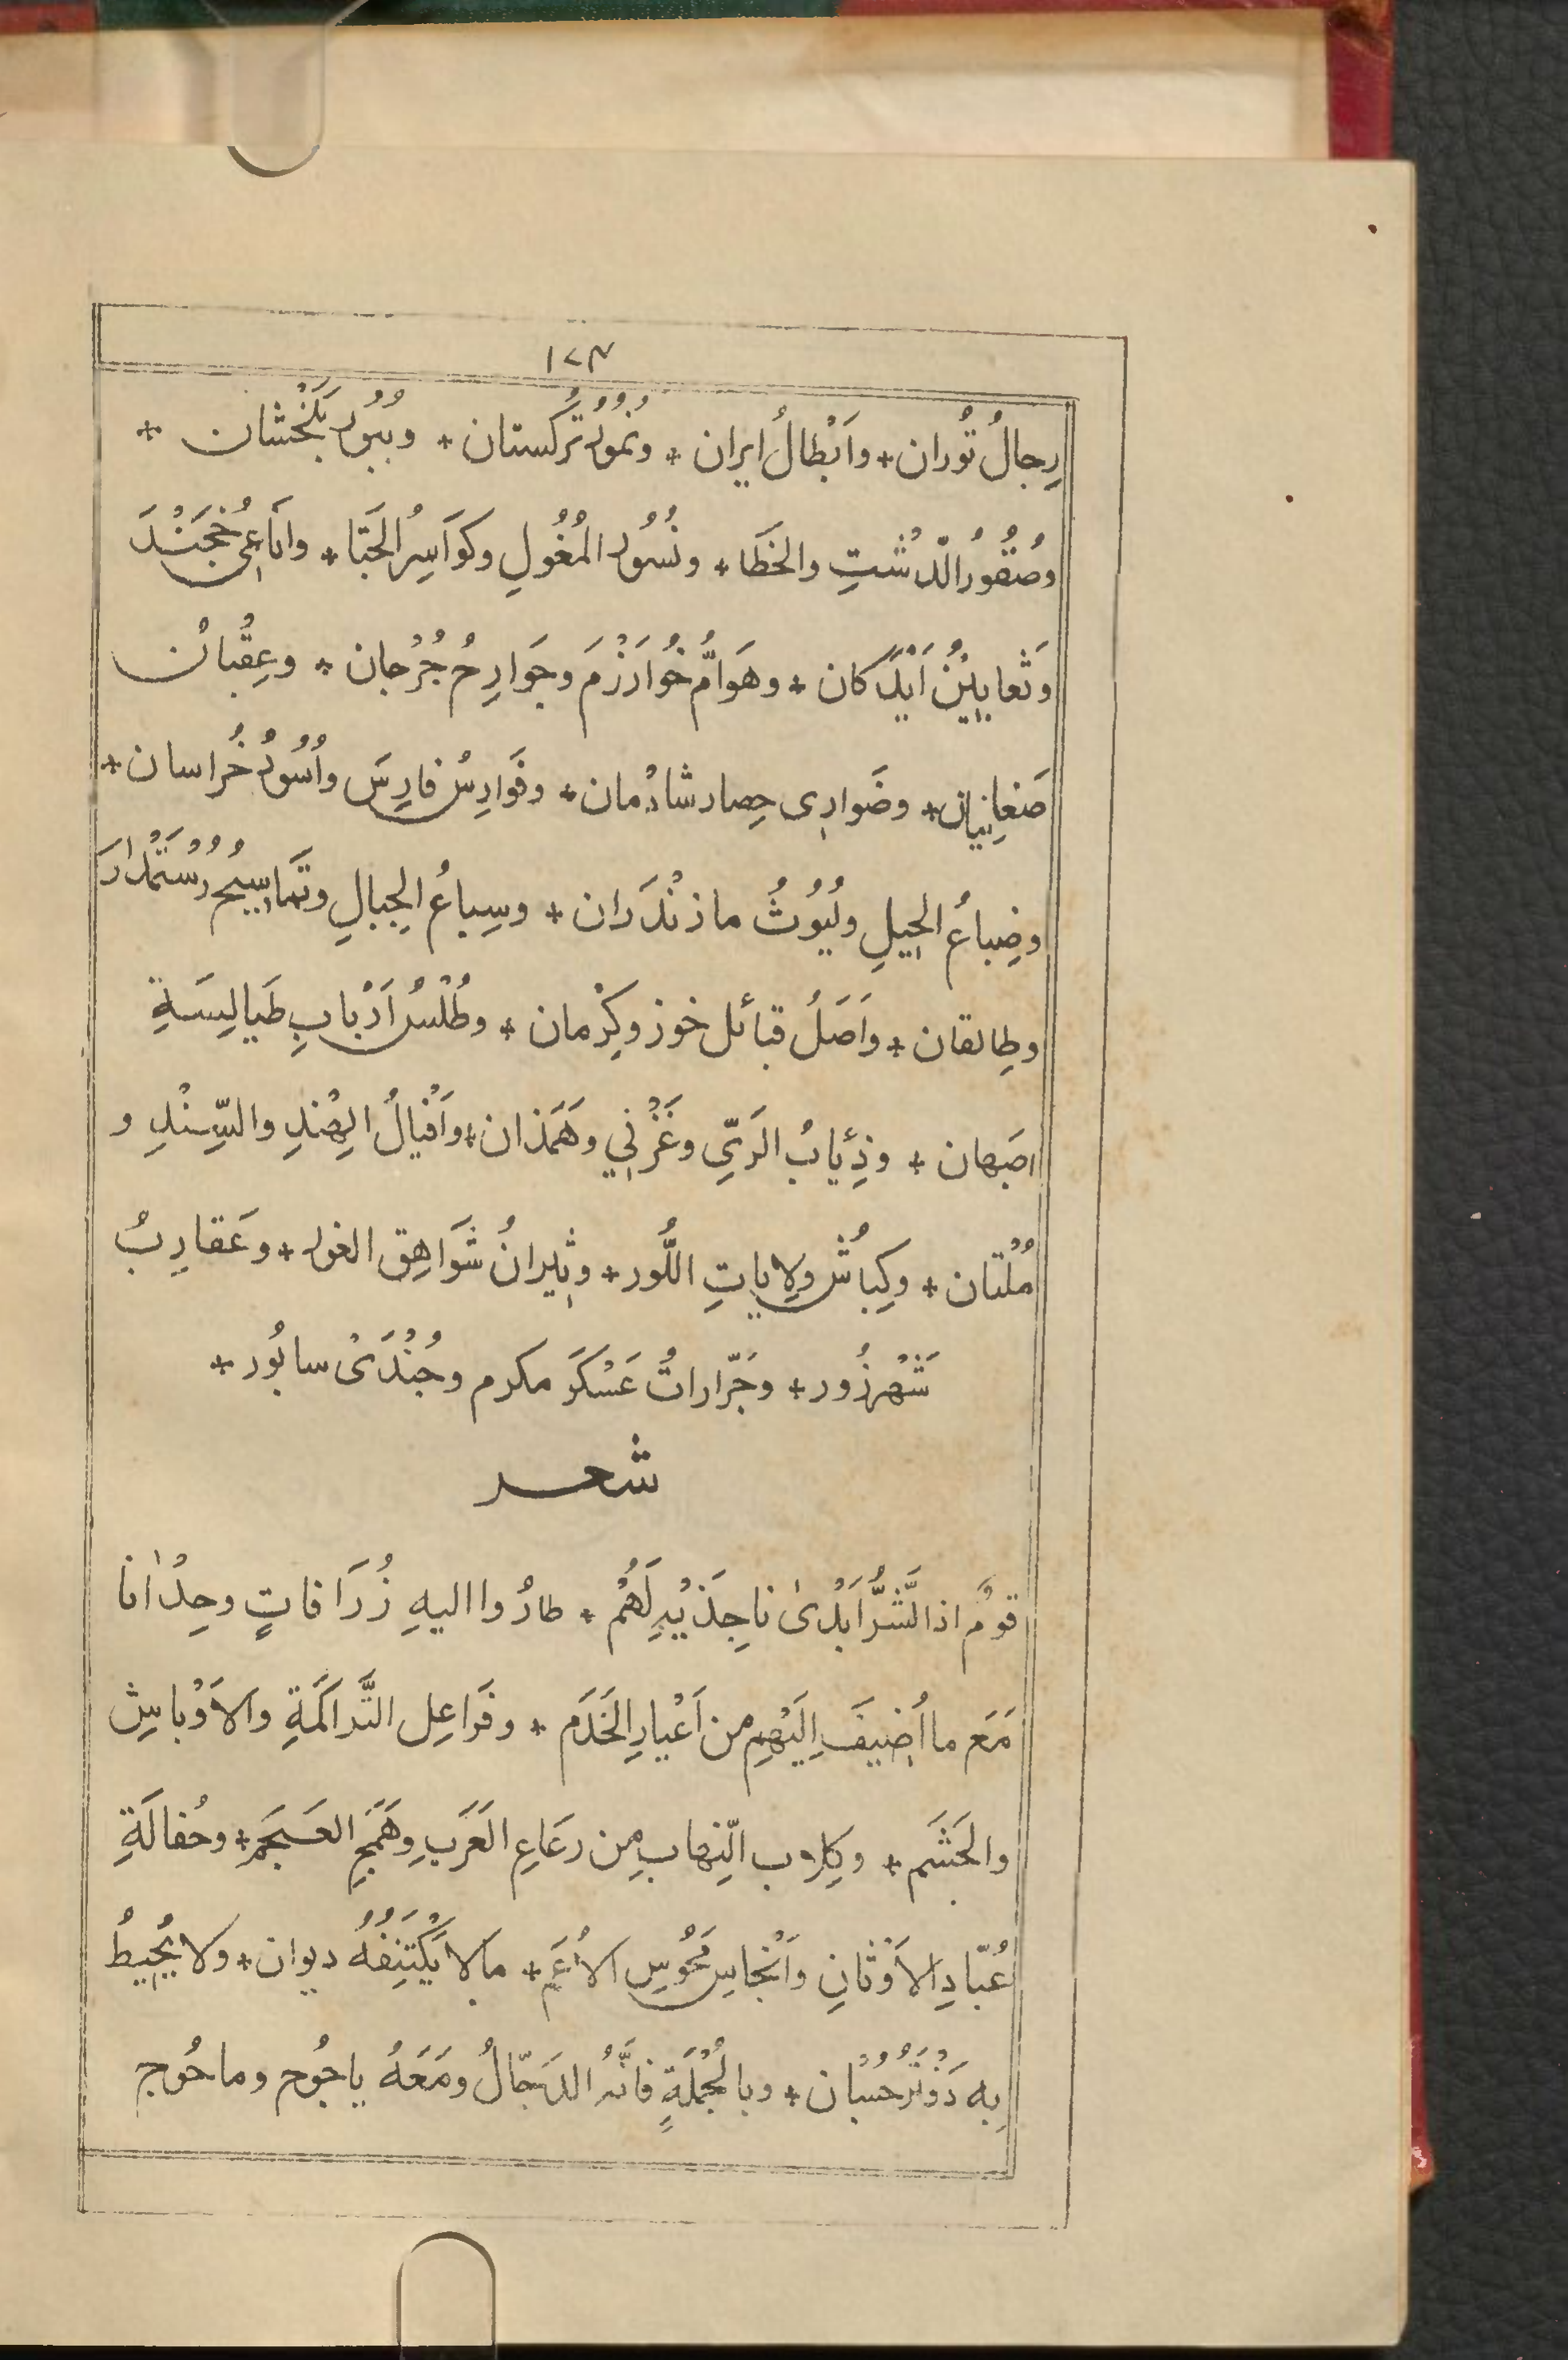 ١٧٣
رِجالُ تُوران * واَبْطالُ ايران * ونُمُوْرُ تُرْكستان * وبُبُورُ بَلَخْشان *
وصُقُوْرُ الدّشْتِ والخَطَا * ونُسُورُ المُغُولِ وكَوَاسِرُ الجَتَا * وافَاعِى خُجَنْدَ
وَثَعابِيْنُ اَنْدَكان * وهَوَامُّ خُوَارَزْمَ وجَوَارِحُ جُرْجان * وعِقْبانُ
صَغانِيان * وضَوارِى حِصار شادْمان * وفَوارِسُ فارِسَ واُسُوْدُ خُراسان *
وضِباعُ الجِيلِ ولُيُوْثُ مازنْدَران * وسِباعُ الجِبالِ وتَماسِيحُ رُسْتَمْدارَ
وطالقان * واَصَلُ قبائل خوز وكِرْمان * وطُلْسُ اَرْبابِ طَيالِسَةِ
اصبَهان * وذِئابُ الرَيِّ وغَزْنِي وهَمَذان * واَفْيالُ الهِنْدِ والسِّنْدِ و
مُلْتان * وكِباشُ وِلاياتِ اللُّور * وثِيرانُ شَوَاهِقِ الغور * وعَقارِبُ
شَهْرزُور * وجَرّاراتُ عَسْكَرَ مكرم وجُنْدَىْ سابُور *
شعر
قومٌ اذا الشَّرُّ اَبْدىٰ ناجِذَيْهِ لَهُمْ * طارُوا اليهِ زُرَافاتٍ وحِدْانا
مَعَ ما اُضِيفَ اِلَيْهِم من اَعْيارِ الخَدَم * وفَراعِلِ التَّراكَمَةِ والاَوْباشِ
والحَشَم * وكِلاب النِّهابِ مِن رعَاعِ العَرَبِ وهَمَجِ العَجَم * وحُفالَةِ
عُبّادِ الاَوْثانِ واَنْجاسِ مَجُوْسِ الاُمَم * مالا يَكْتَنِفُهُ ديوان * ولا يُحِيطُ
بِه دَفْتَرُ حُسْبان * وبالجُمْلَةِ فانَّهُ الدَجّالُ ومَعَهُ ياجُوج وماجُوج